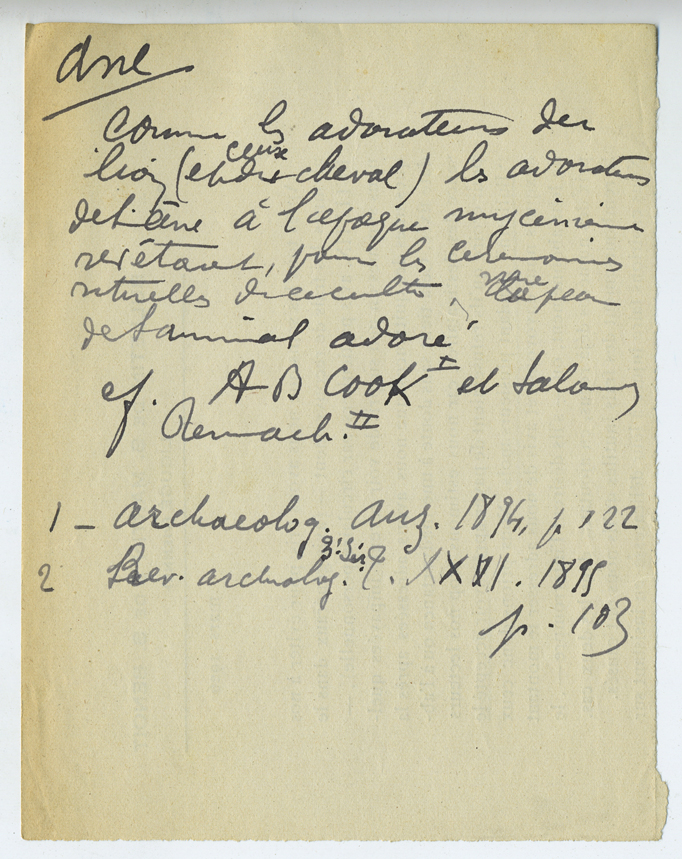 âne
Comme les adorateurs du
lion (et ceux du cheval) les adorateurs
de l'âne à l'époque mycénienne
revêtaient, pour les cérémonies
rituelles de ce culte, une peau
de l'animal adoré
cf. A B Cook I et Salomon
Reinach. II
1 - archaeolog. Anz. 1894, p. 122
2 Rev. archéolog. 3e Sér. t. XXVI. 1895
p. 103